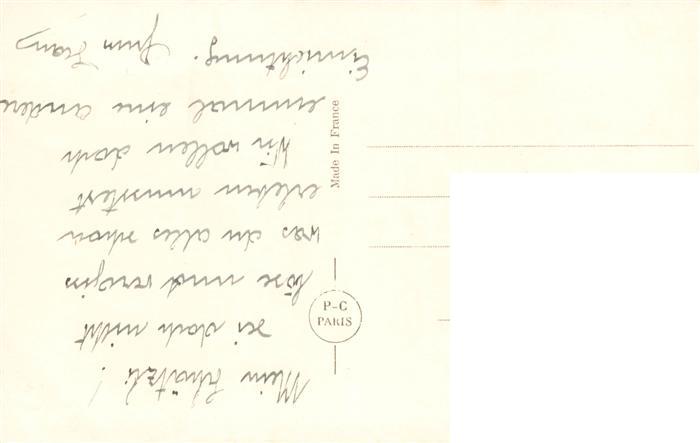 Mein Schätzli!
sei doch nicht
böse und vergiss
was du alles schon
erleben musstest
Wir wollen doch
einmal eine andere
Einrichtung.
Made In France
P-C
PARIS